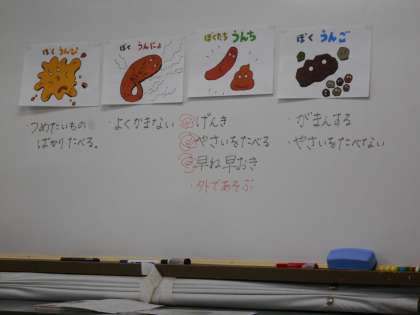 ぼく うんぴ
ぼく うんにょ
ぼくたち うんち
ぼく うんご
つめたいもの
ばかりたべる。
・よくかまない
げんき
やさいをたべる
早ね早おき
・外であそぶ
・がまんする
・やさいをたべない